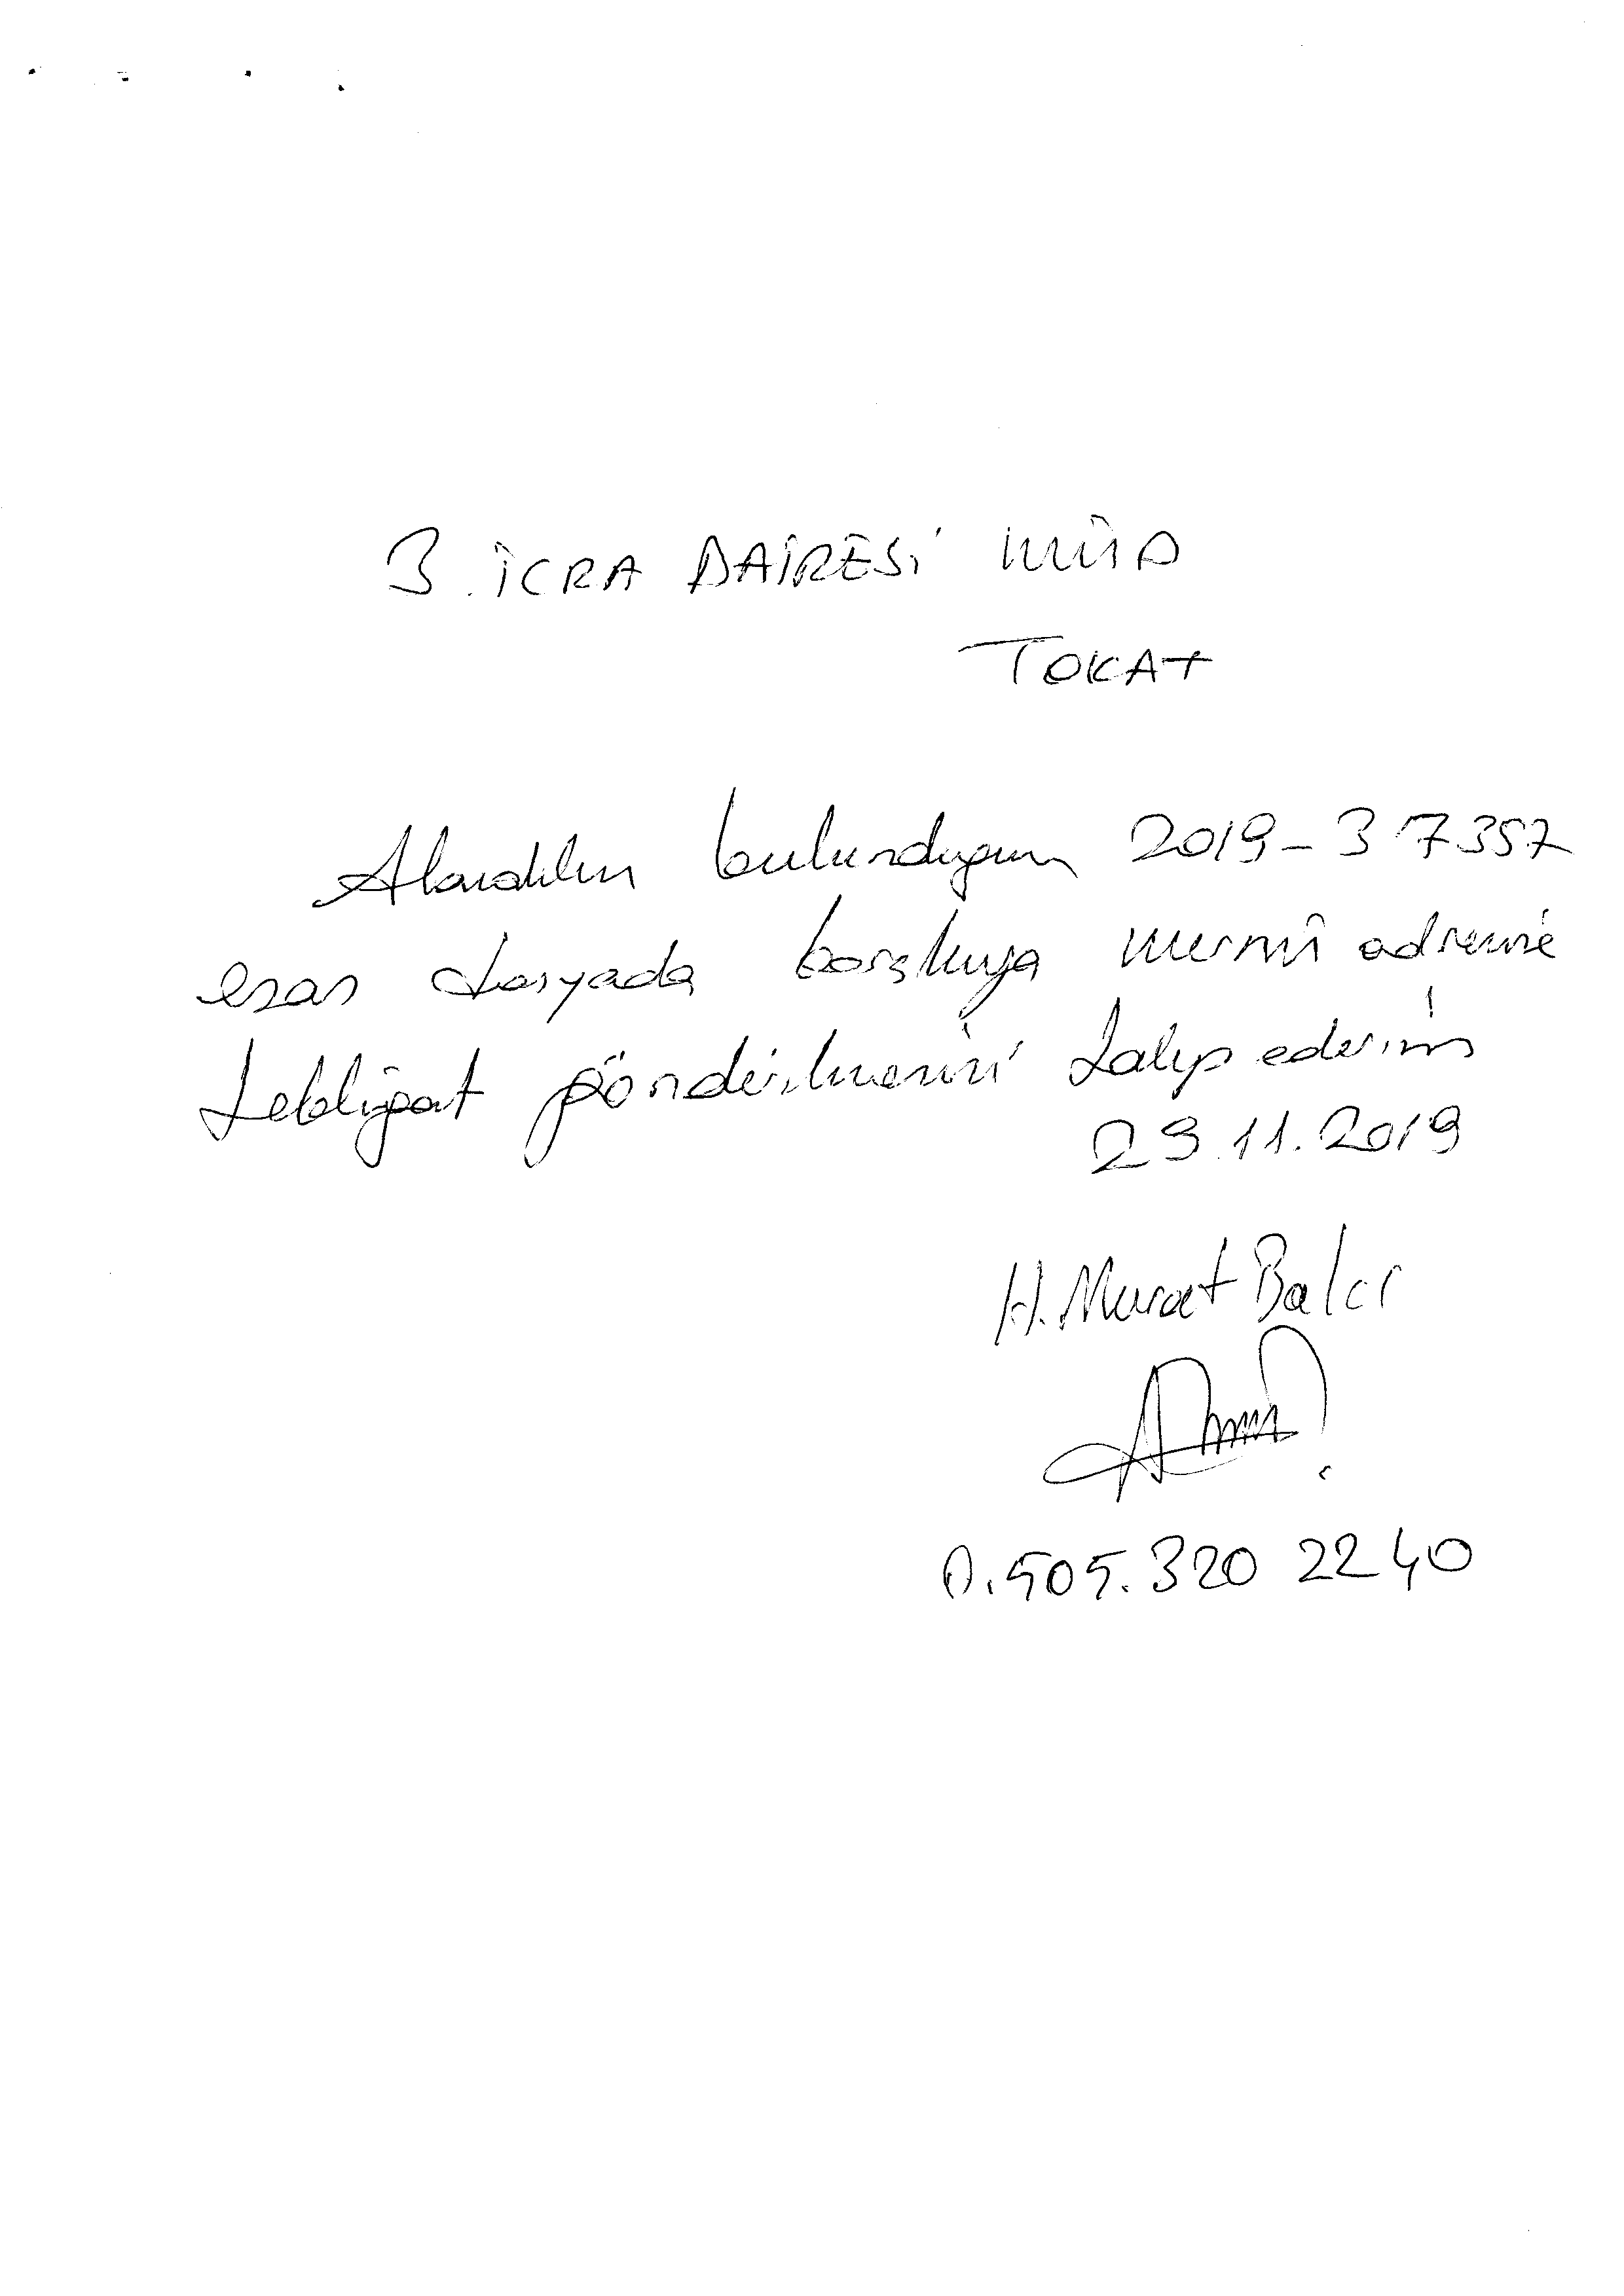 3. İCRA DAİRESİ MÜD
TOKAT
Alacaklısı bulunduğum 2019-37357
esas dosyada borçluya mernis adresine
tebligat gönderilmesini talep ederim
29.11.2019
H. Murat Balcı
0.505.320 2240